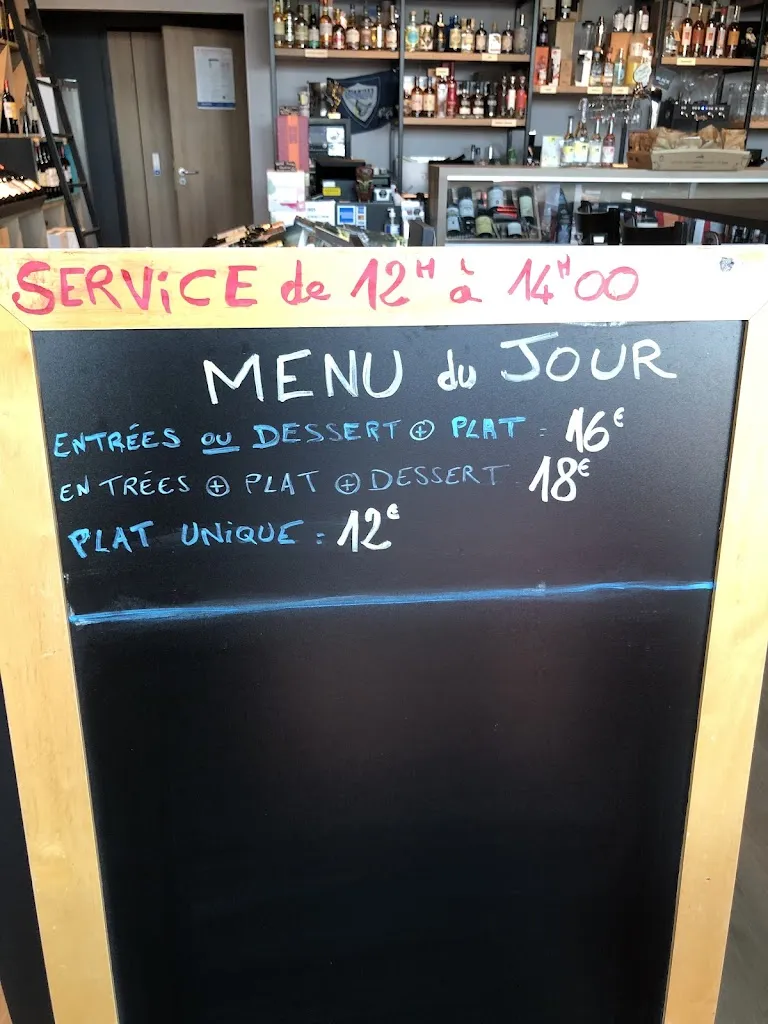 SERVICE de 12H à 14H00
MENU du JOUR
ENTRÉES OU DESSERT + PLAT = 16€
ENTRÉES + PLAT + DESSERT 18€
PLAT UNIQUE : 12€